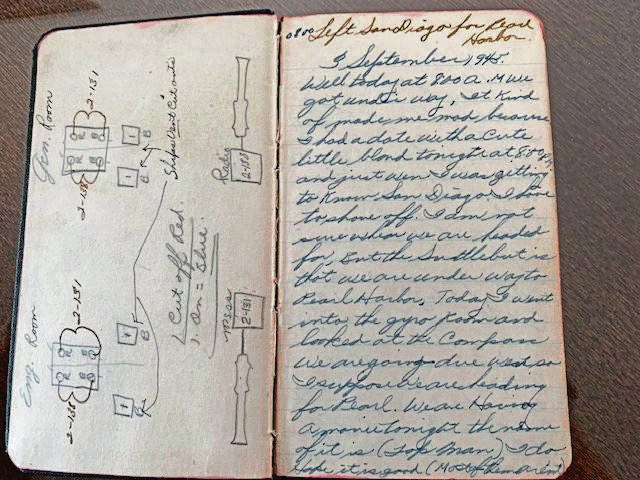 Gen. Room
2-131
2-131
1
B
1
B
Ships Vent Cut outs
Radio
2-183
Eng. Room
2-131
2-131
1
B
1
B
1 Cut off Red.
1. on = Blue.
2-131
0800 Left San Diago for Pearl
Harbor.
3 September 1945.
Well today at 800 A.M we
got under way, It kind
of made me mad because
I had a date with a cute
little blond tonight at 8:00
and just when I was getting
to know San Diago. I have
to shove off. I am not
sure where we are headed
for, But the Scuttlebut is
that we are under way to
Pearl Harbor, Today I went
into the gyro Room and
looked at the Compass
We are going due west, so
I suppose we are heading
for Pearl. We are Having
a movie tonight the name
of it is (Top Man) I do
Hope it is good (Most of them aren't)